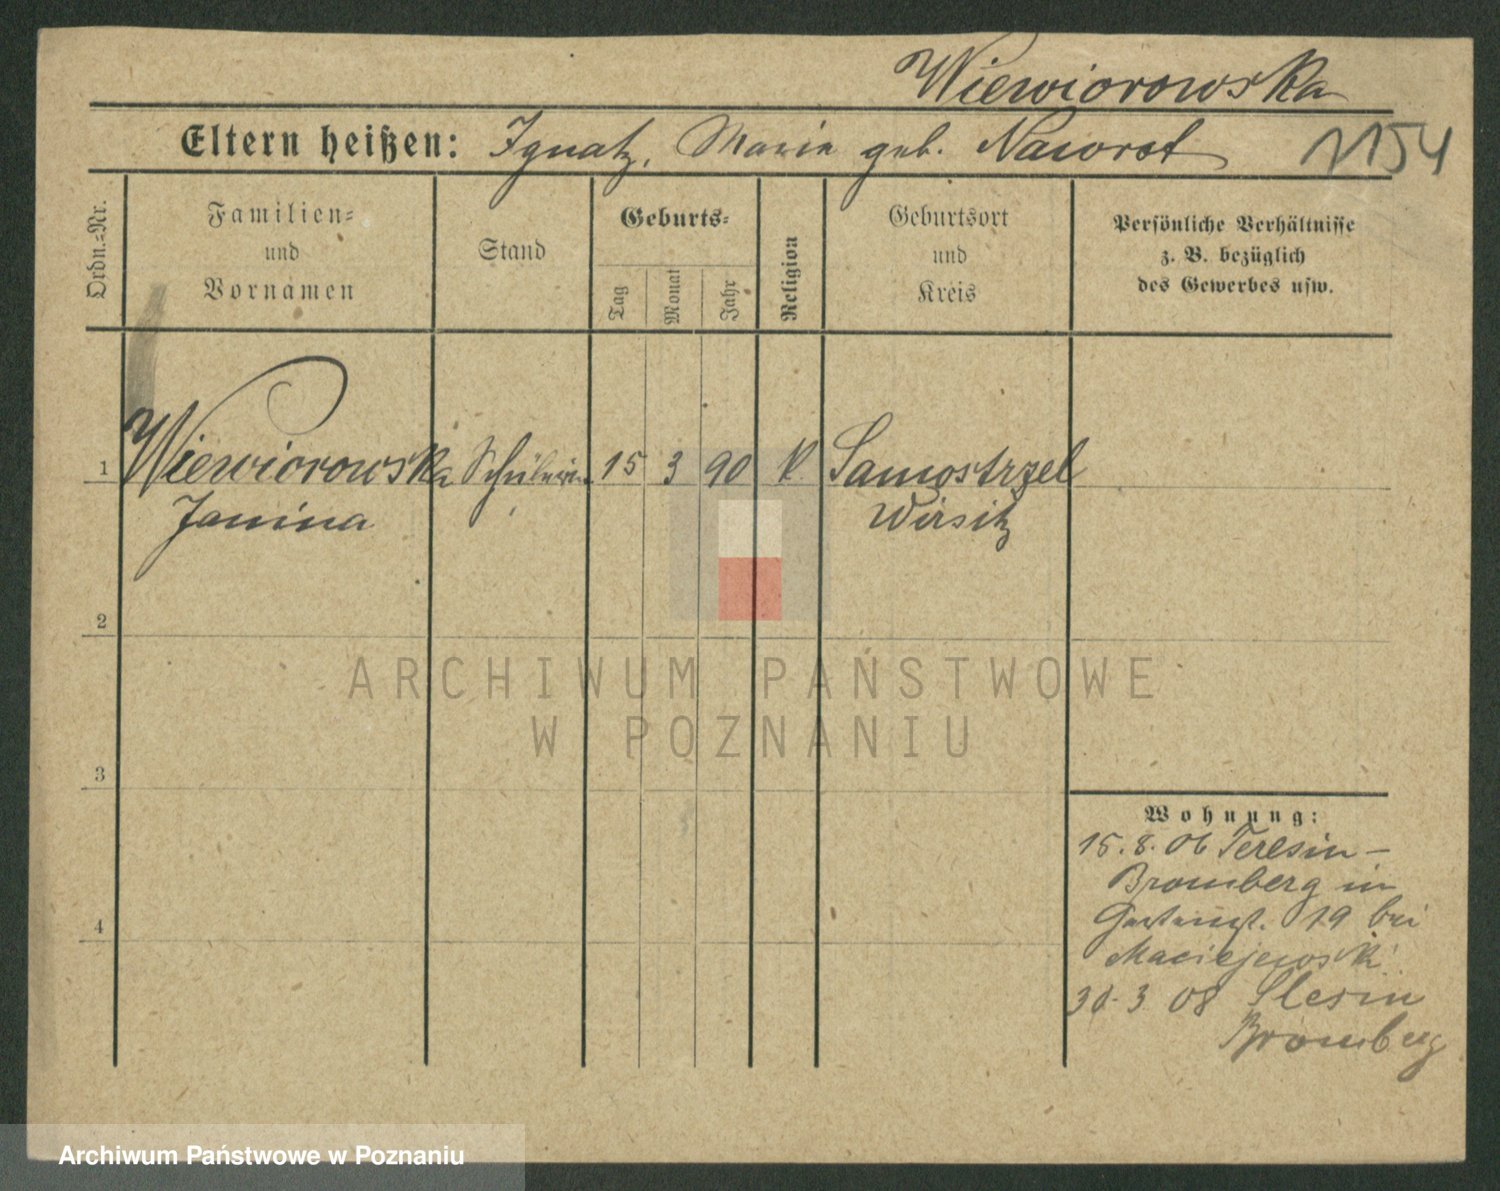 Wiewiorowska
Eltern heißen: Ignatz, Maria geb. Naworot
1154
Ordn.=Nr.
Familien=
und
Vornamen
Stand
Geburts=
Tag
Monat
Jahr
Religion
Geburtsort
und
Kreis
Persönliche Verhältnisse
z. B. bezüglich
des Gewerbes usw.
1 Wiewiorowska Schülerin 15 3 90 k. Samostrzel
Janina Wirsitz
2
3
4
Wohnung:
15. 8. 06 Teresin-
Bromberg in
19 bei
Maciejewski
30. 3 08 Slesin
Bromberg
ARCHIWUM PAŃSTWOWE
W POZNANIU
Archiwum Państwowe w Poznaniu